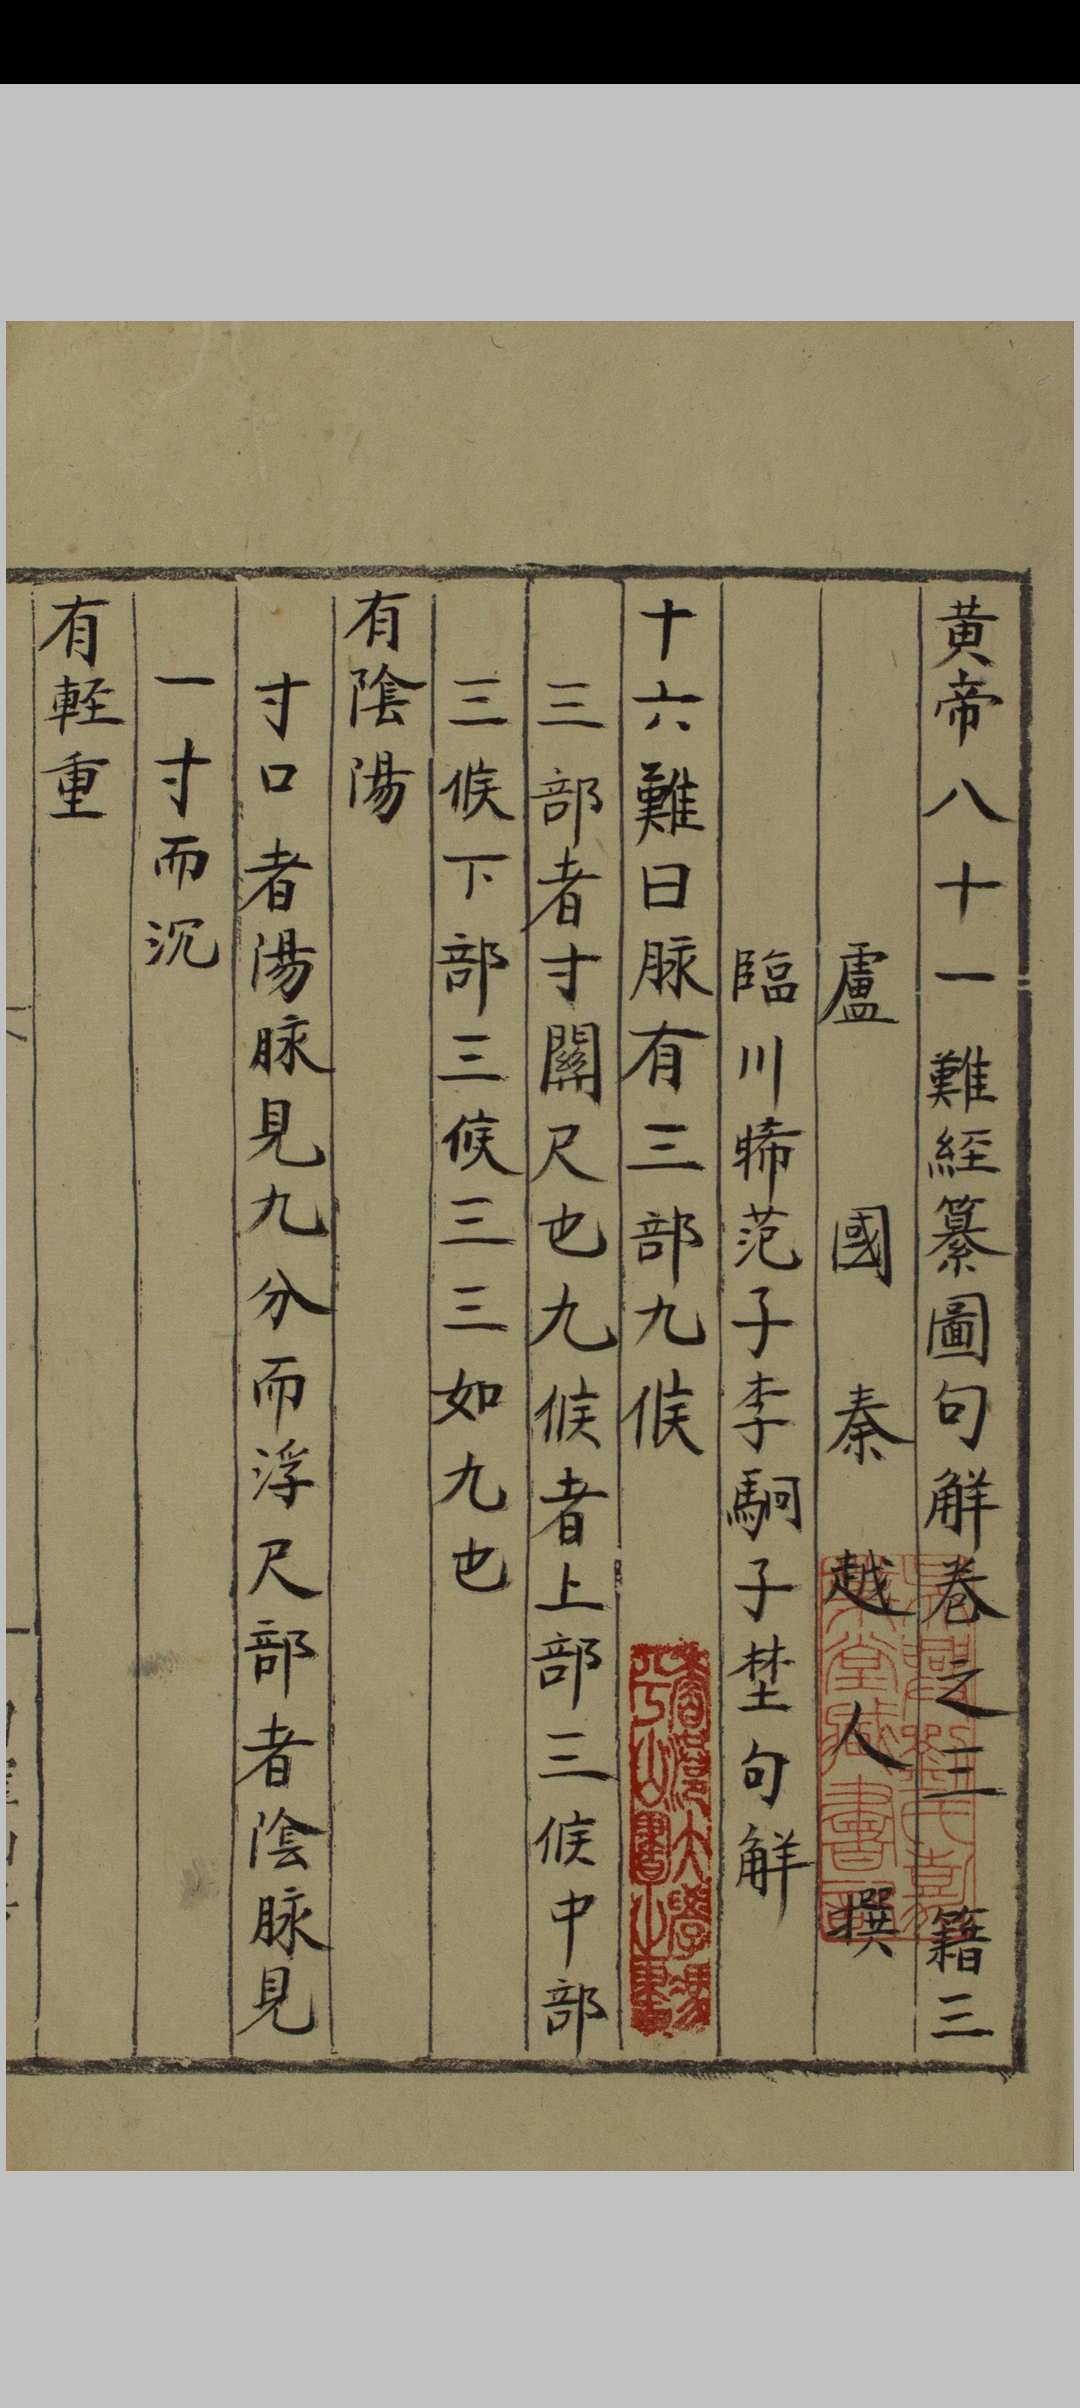 黄帝八十一難經纂圖句解卷之三 籍三
盧國秦越人撰
臨川晞范子李駉子埜句解
十六難曰脉有三部九候
三部者寸關尺也九候者上部三候中部
三候下部三候三三如九也
有陰陽
寸口者陽脉見九分而浮尺部者陰脉見
一寸而沉
有輕重